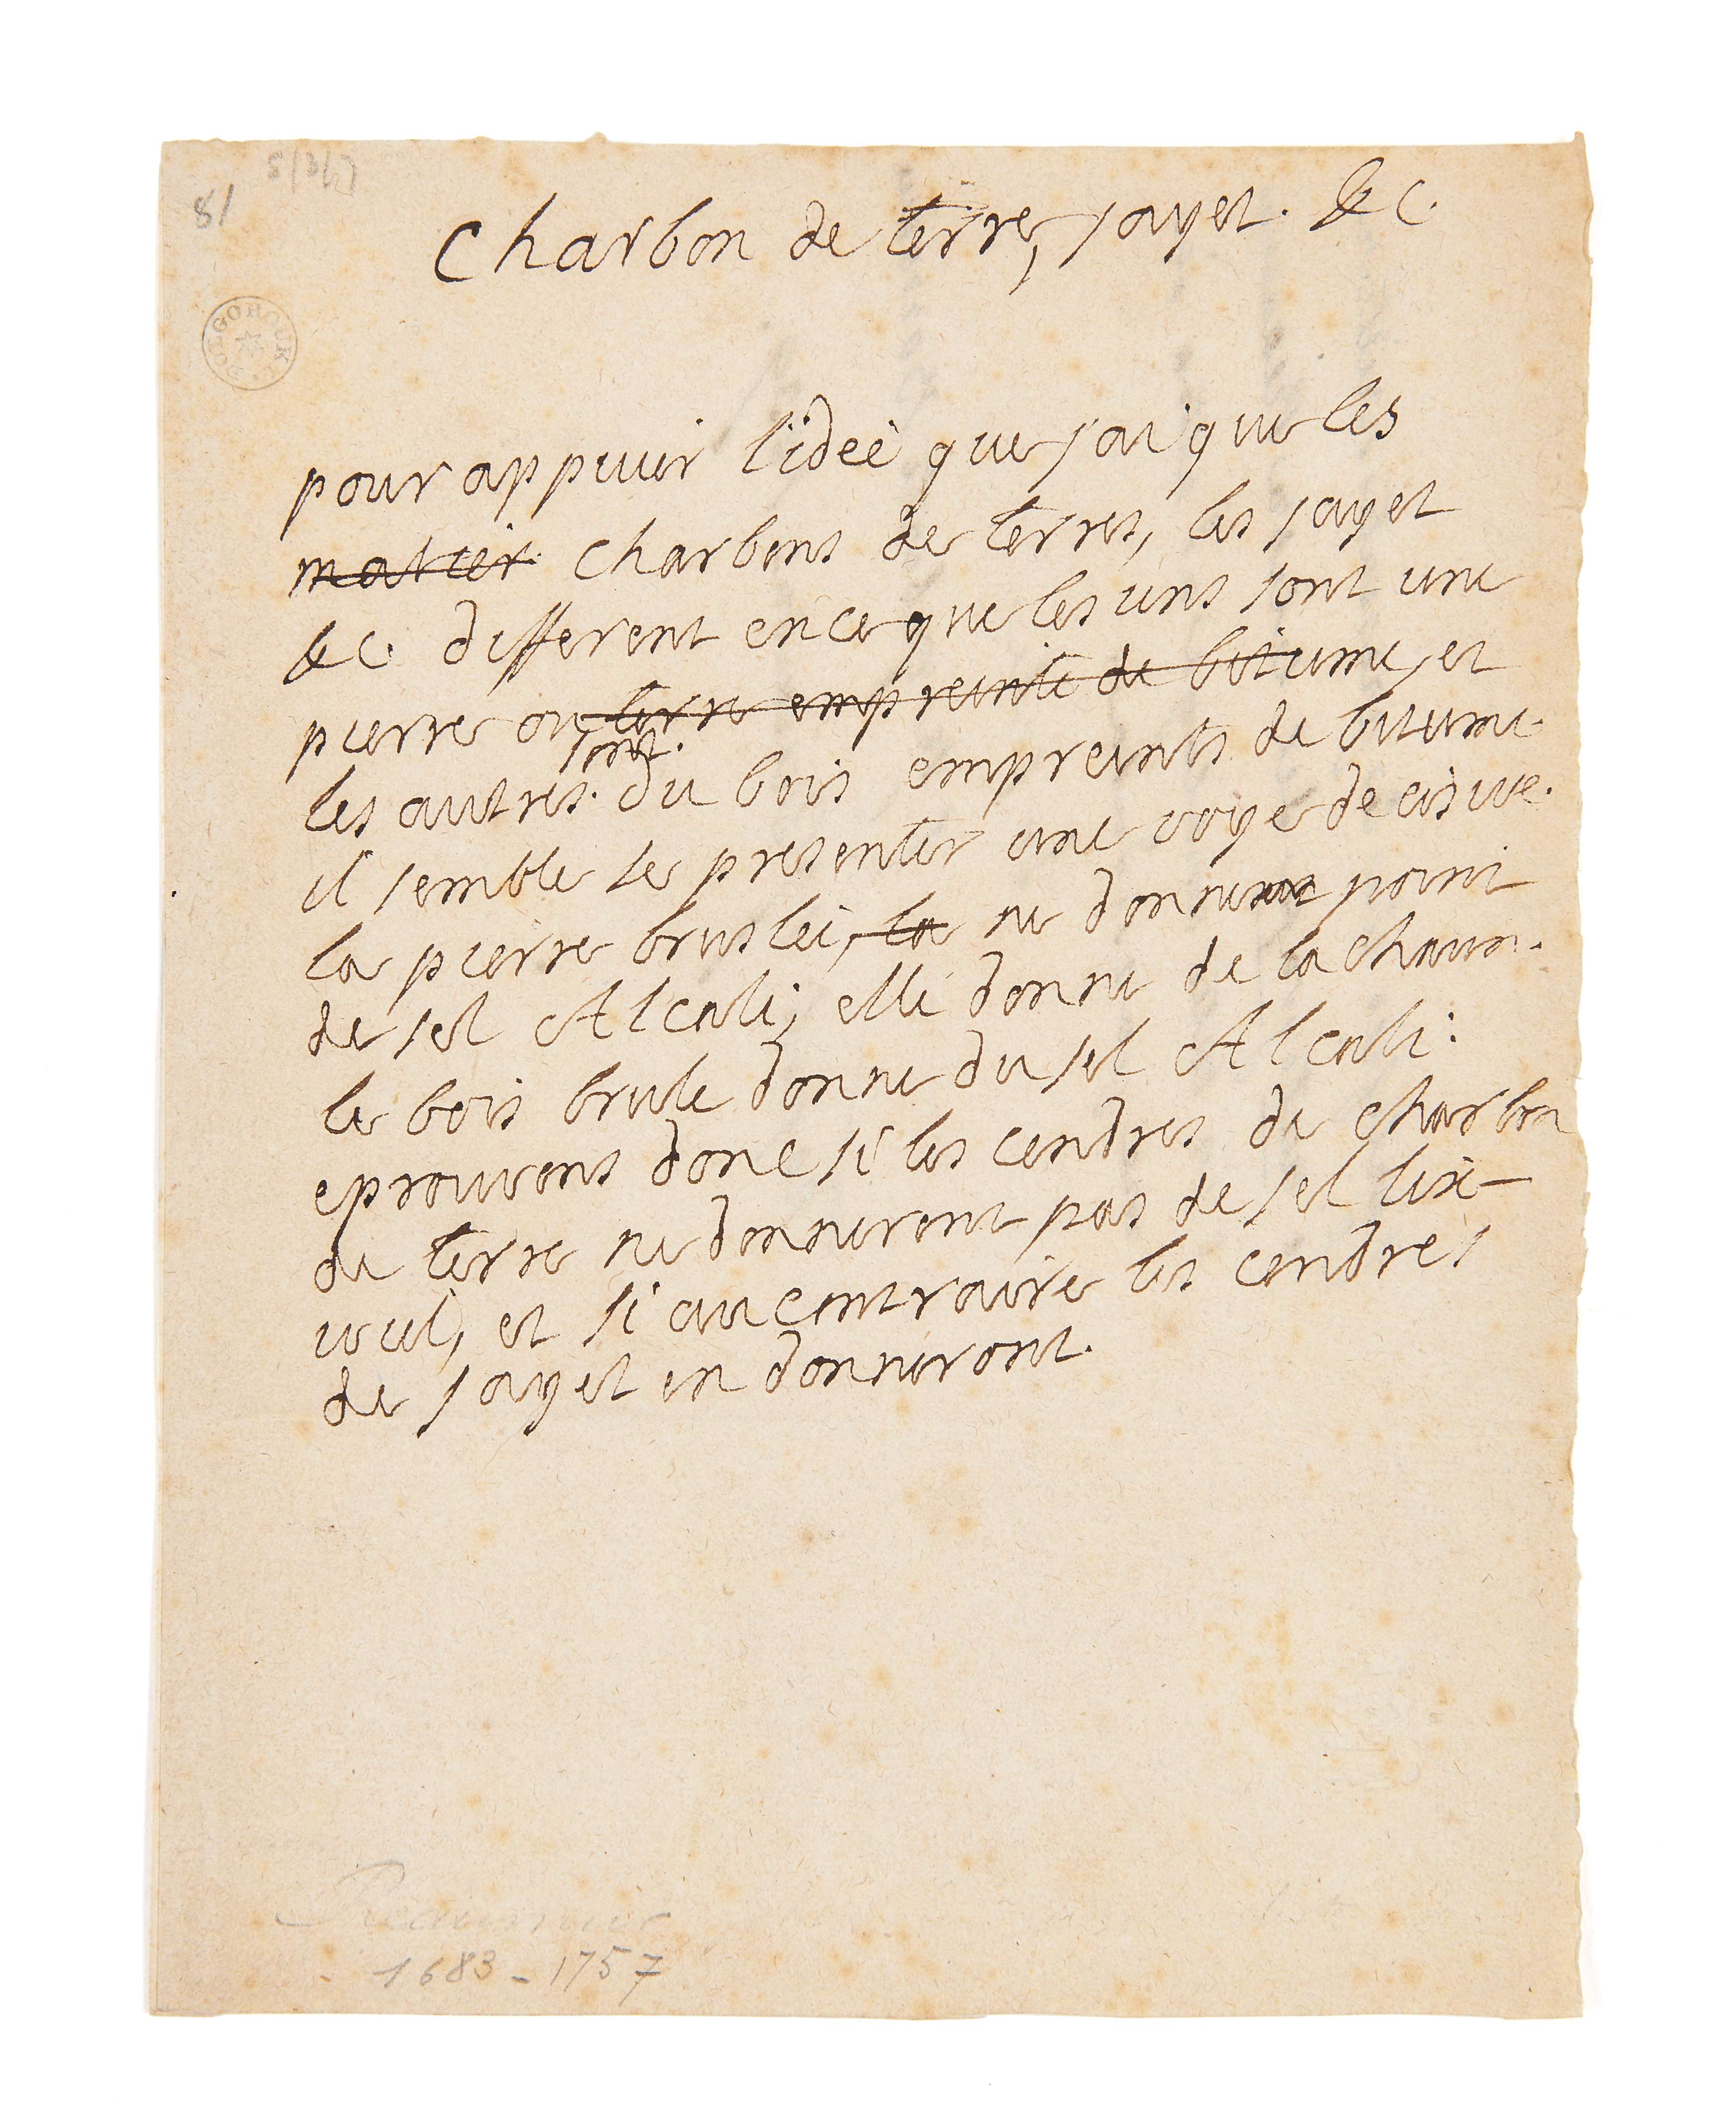 81
DOLGOROUKI
Charbon de terre, jayet. &c.
pour appuier l'ideé que j'ai que les
matier. charbons de terres, les jayet
&c. different en ce que les uns sont une
pierre ou terre empreinte de bitume, et
sont.
les autres. du bois empreints de bitume.
il semble se presenter une voye decisive.
la pierre bruslée, la ne donne point
de sel Alcali; elle donne de la chaux.
le bois brule donne du sel Alcali:
eprouvons donc si les cendres de charbon
de terre ne donneront pas de sel lixi-
viel, et si au contraire les cendres
de jayet en donneront.
Réaumur
1683-1757